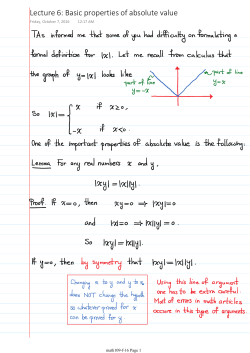 Lecture 6: Basic properties of absolute value
Friday, October 7, 2016 10:27 AM
TAs informed me that some of you had difficulty on formulating a
formal definition for |x|. Let me recall from calculus that
the graph of y=|x| looks like
part of line y=-x
a part of line y=x
So |x| = { x if x≥0,
-x if x<0.
One of the important properties of absolute value is the following:
Lemma For any real numbers x and y,
|xy| = |x||y|.
Proof. If x=0, then xy=0 ⇒ |xy|=0
and |x|=0 ⇒ |x||y|=0
So |xy|=|x||y|.
If y=0, then by symmetry that |xy|=|x||y|.
Changing x to y and y to x,
does NOT change the
so whatever proved for x
can be proved for y
Using this line of argument
one has to be extra careful.
Most of errors in math articles
occurs in this type of arguments.
math109-f16 Page 1